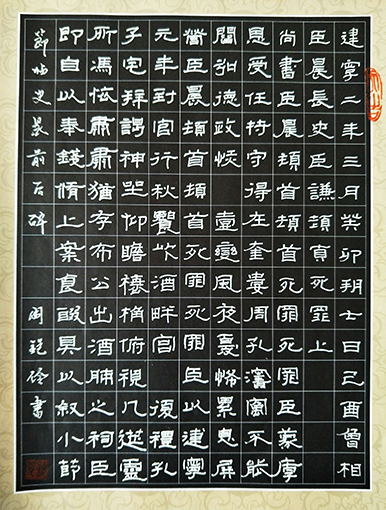 建寧二年三月癸卯朔七日己酉魯相
臣晨長史臣謙頓首死罪上
尚書臣晨頓首頓首死罪死罪臣蒙厚
恩受任符守得在奎婁周孔舊寓不能
闡弘德政恢壹變夙夜憂怖累息屏
營臣晨頓首頓首死罪死罪臣以建寧
元年到官行秋饗飲酒畔宮復禮孔
子宅拜謁神坐仰瞻榱桷俯視几筵靈
所馮依肅肅猶存布公出酒脯之祠臣
即自以奉錢脩上案食醊具以叙小節
節臨史晨前后碑 周書